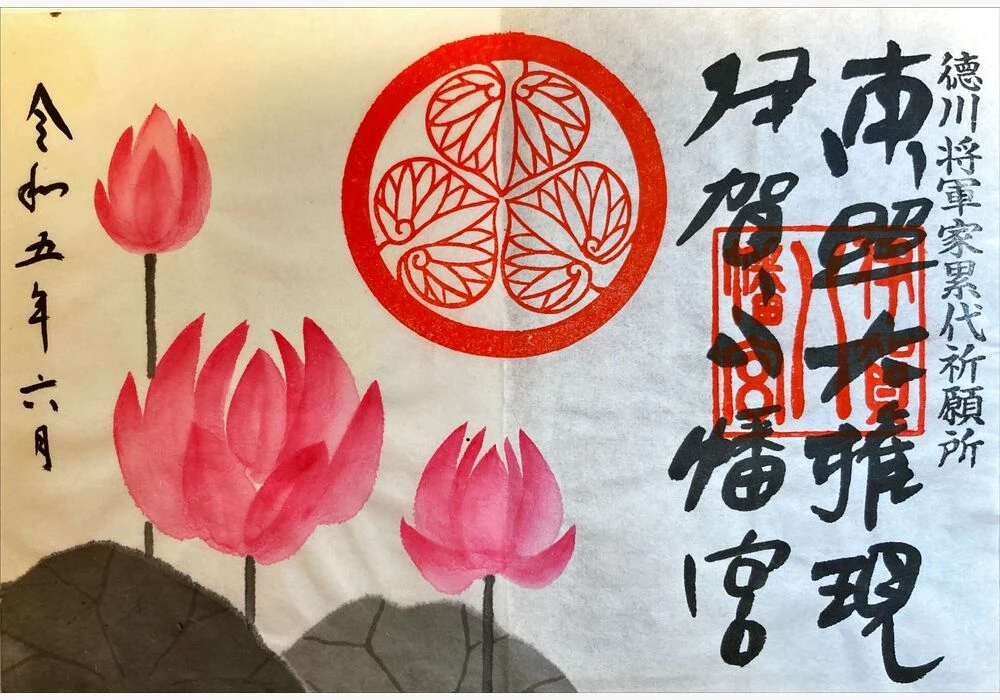 徳川将軍家累代祈願所
東照大権現
伊賀八幡宮
伊賀
八
幡宮
令和五年六月